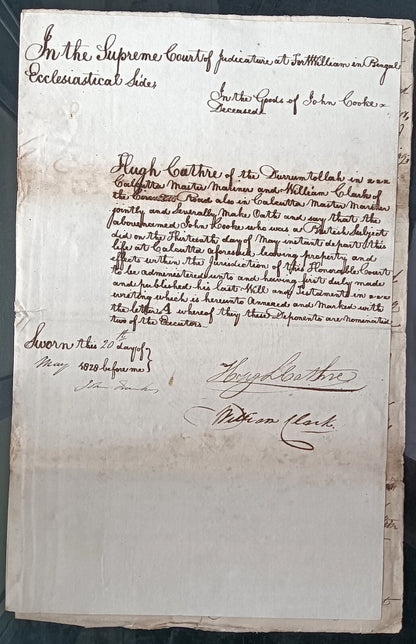 In the Supreme Court of Judicature at Fort William in Bengal
Ecclesiastical Side
In the Goods of John Cooke
Deceased
Hugh Cathre of the Durrumtollah in
Calcutta Master Mariner and William Clark of
the Circular Road also in Calcutta Master Mariner
jointly and severally Make Oath and say that the
abovenamed John Cooke who was a British Subject
did on the Thirteenth day of May instant depart this
life at Calcutta aforesaid leaving property and
effects within the Jurisdiction of this Honorable Court
to be administered unto and having first duly made
and published his last Will and Testament in
writing which is hereunto Annexed and Marked with
the letter A whereof they these Deponents are nominated
two of the Executors.
Sworn this 20th day of
May 1828 before me
Hugh Cathre
William Clark